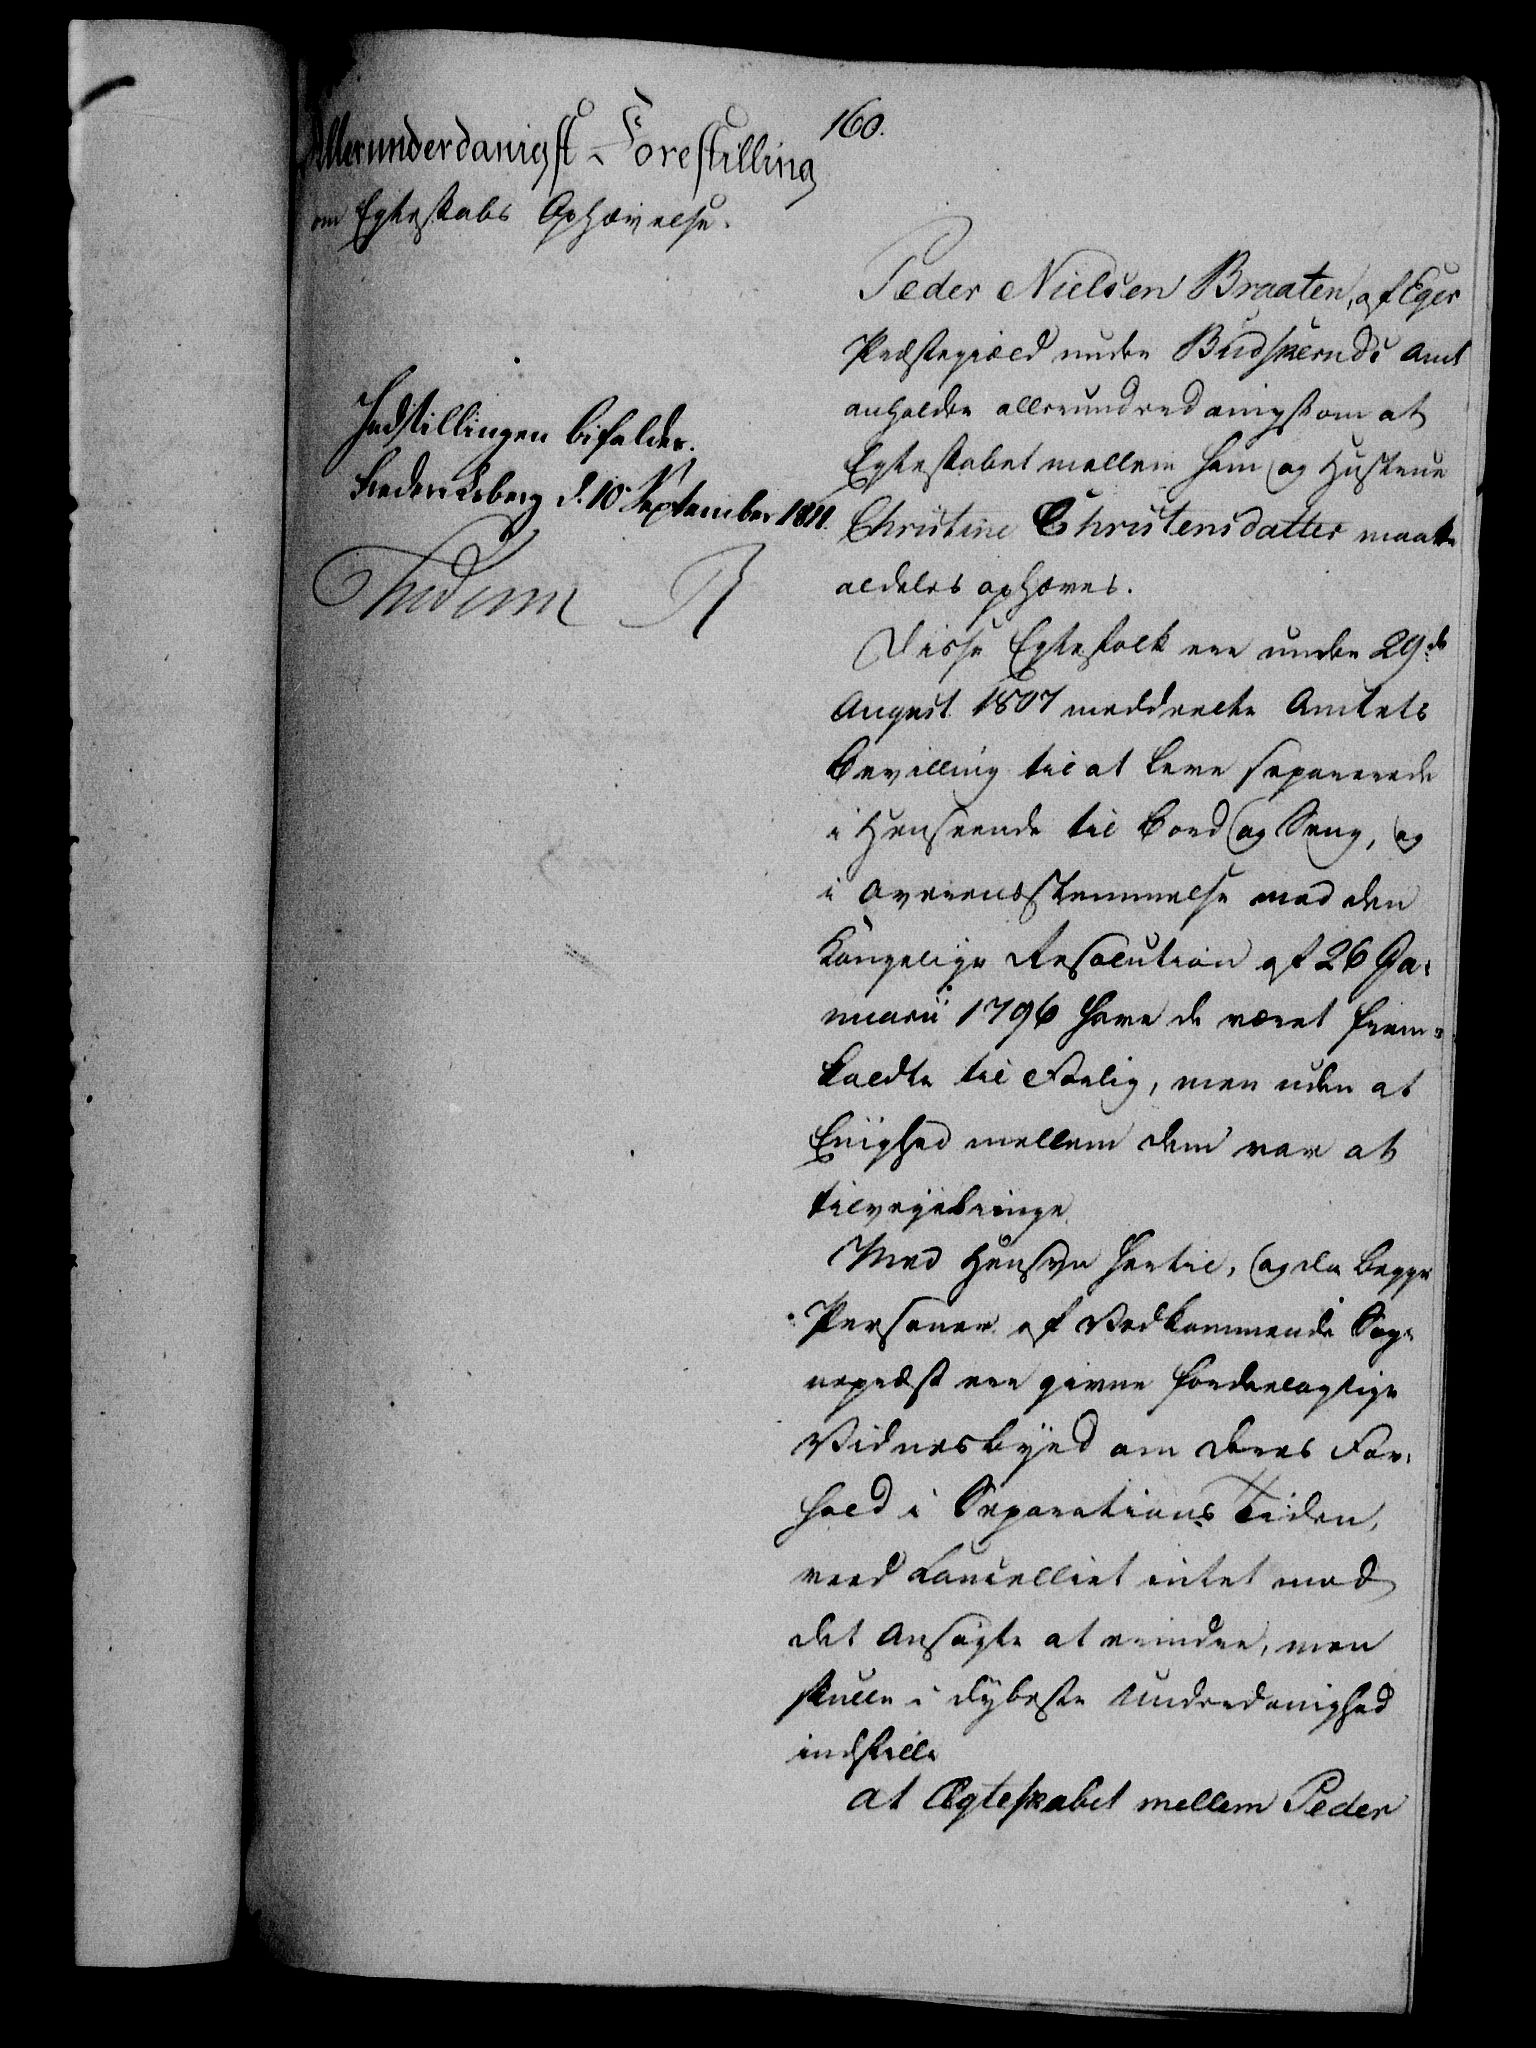 160.
Allerunderdanigst Forestilling
om Egteskabs Ophævelse.
Indstillingen bifaldes.
Frederiksberg d: 10 September 1811.
Frederik R
Peder Nielsen Braaten, af Eger
Præstegield under Budskeruds Amt
anholder allerunderdanigst om at
Egteskabet mellem ham og Hustrue
Christine Christensdatter maatte
aldeles ophæves.
Disse Egtefolk ere under 29de
August 1807 meddeelte Amtets
Bevilling til at leve separerede
i Henseende til Bord og Seng, og
i Overeensstemmelse med den
Kongelige Resolution af 26 Ja-
nuarii 1796 have de været frem-
kaldte til Forlig, men uden at
Eenighed mellem dem var at
tilvejebringe
Med Hensyn hertil, og da begge
Personer af Vedkommende Sog-
nepræst ere givne fordeelagtige
Vidnesbyrd om deres For-
hold i Separations Tiden,
veed Cancelliet intet mod
det Ansøgte at erindre, men
skulle i dybeste Underdanighed
indstille
at Ægteskabet mellem Peder